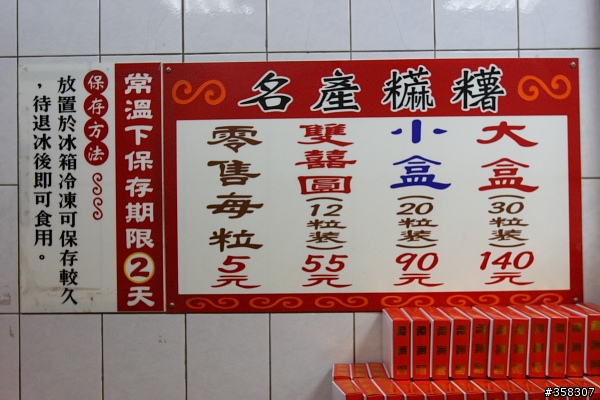 名產䊳糬
大盒(30粒裝)140元
小盒(20粒裝)90元
雙囍圓(12粒裝)55元
零售每粒5元
常溫下保存期限2天
保存方法
放置於冰箱冷凍可保存較久
，待退冰後即可食用。
#358307